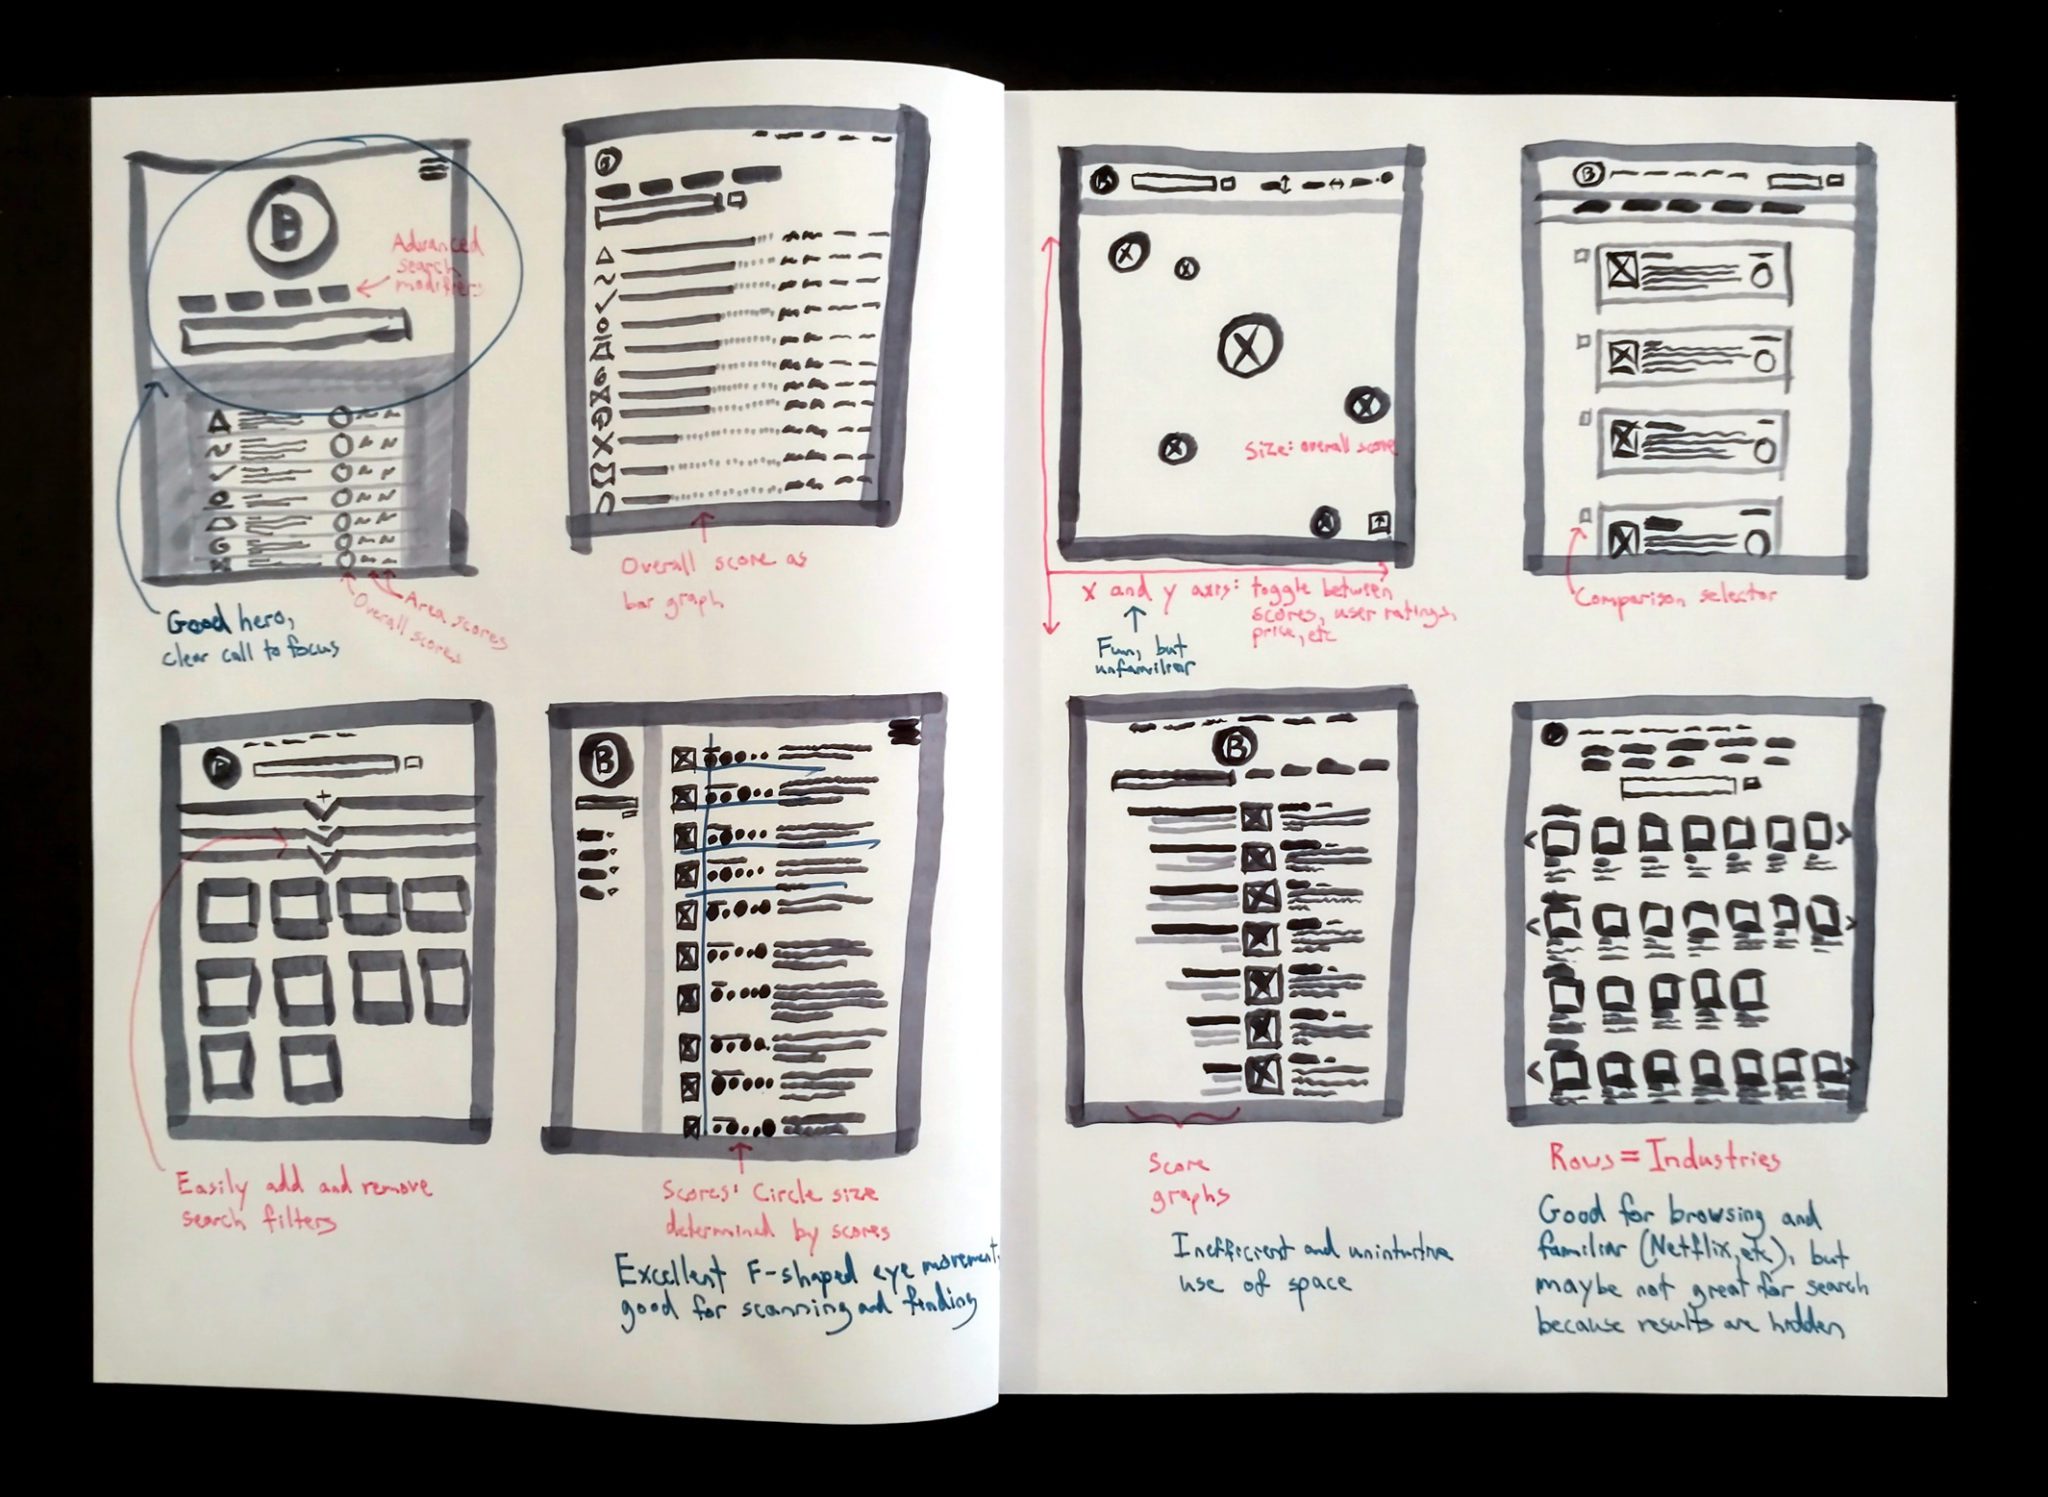 B
Advanced
search
modifiers
Good hero,
clear call to focus
Overall scores
Area scores
B
Overall score as
bar graph
B
Easily add and remove
search filters
B
Scores: Circle size
determined by scores
Excellent F-shaped eye movement,
good for scanning and finding
B
X
X
X
X
X
X
Size: overall score
X and y axis: toggle between
scores, user ratings,
price, etc
Fun, but
unfamiliar
B
Comparison selector
B
Score
graphs
Inefficient and unintuitive
use of space
B
Rows = Industries
Good for browsing and
familiar (Netflix, etc), but
maybe not great for search
because results are hidden